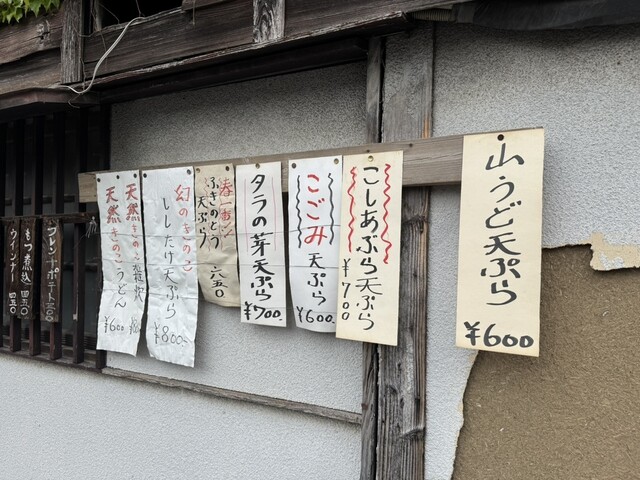 山うど天ぷら
¥600
こしあぶら天ぷら
¥700
こごみ天ぷら
¥600-
タラの芽天ぷら
¥700-
春一番!!
ふきのとう
天ぷら
六五〇
幻のきのこ
ししたけ天ぷら
¥800-
天然きのこ雑炊
天然きのこうどん
¥600
フレンチポテト三〇〇
もつ煮込 四五〇
ウインナー 四五〇